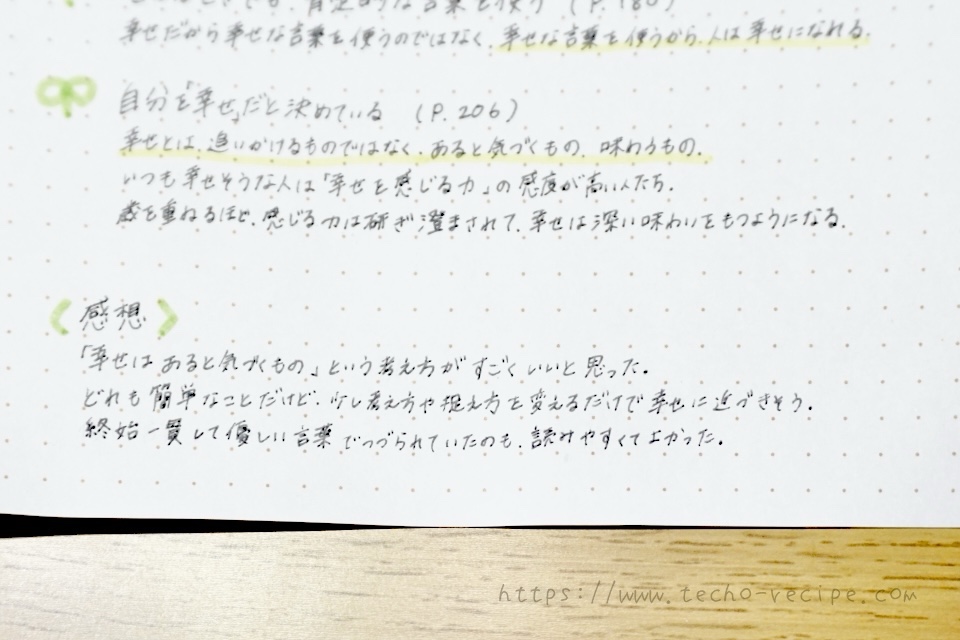 肯定的な言葉を使う (P.180)
幸せだから幸せな言葉を使うのではなく、幸せな言葉を使うから、人は幸せになれる。
自分を「幸せ」だと決めている (P.206)
幸せとは、追いかけるものではなく、あると気づくもの、味わうもの。
いつも幸せそうな人は「幸せを感じる力」の感度が高い人たち。
歳を重ねるほど、感じる力は研ぎ澄まされて、幸せは深い味わいをもつようになる。
〈感想〉
「幸せは あると気づくもの」という考え方がすごくいいと思った。
どれも簡単なことだけど、少し考え方や捉え方を変えるだけで幸せに近づきそう。
終始一貫して優しい言葉でつづられていたのも、読みやすくてよかった。
https://www.techo-recipe.com